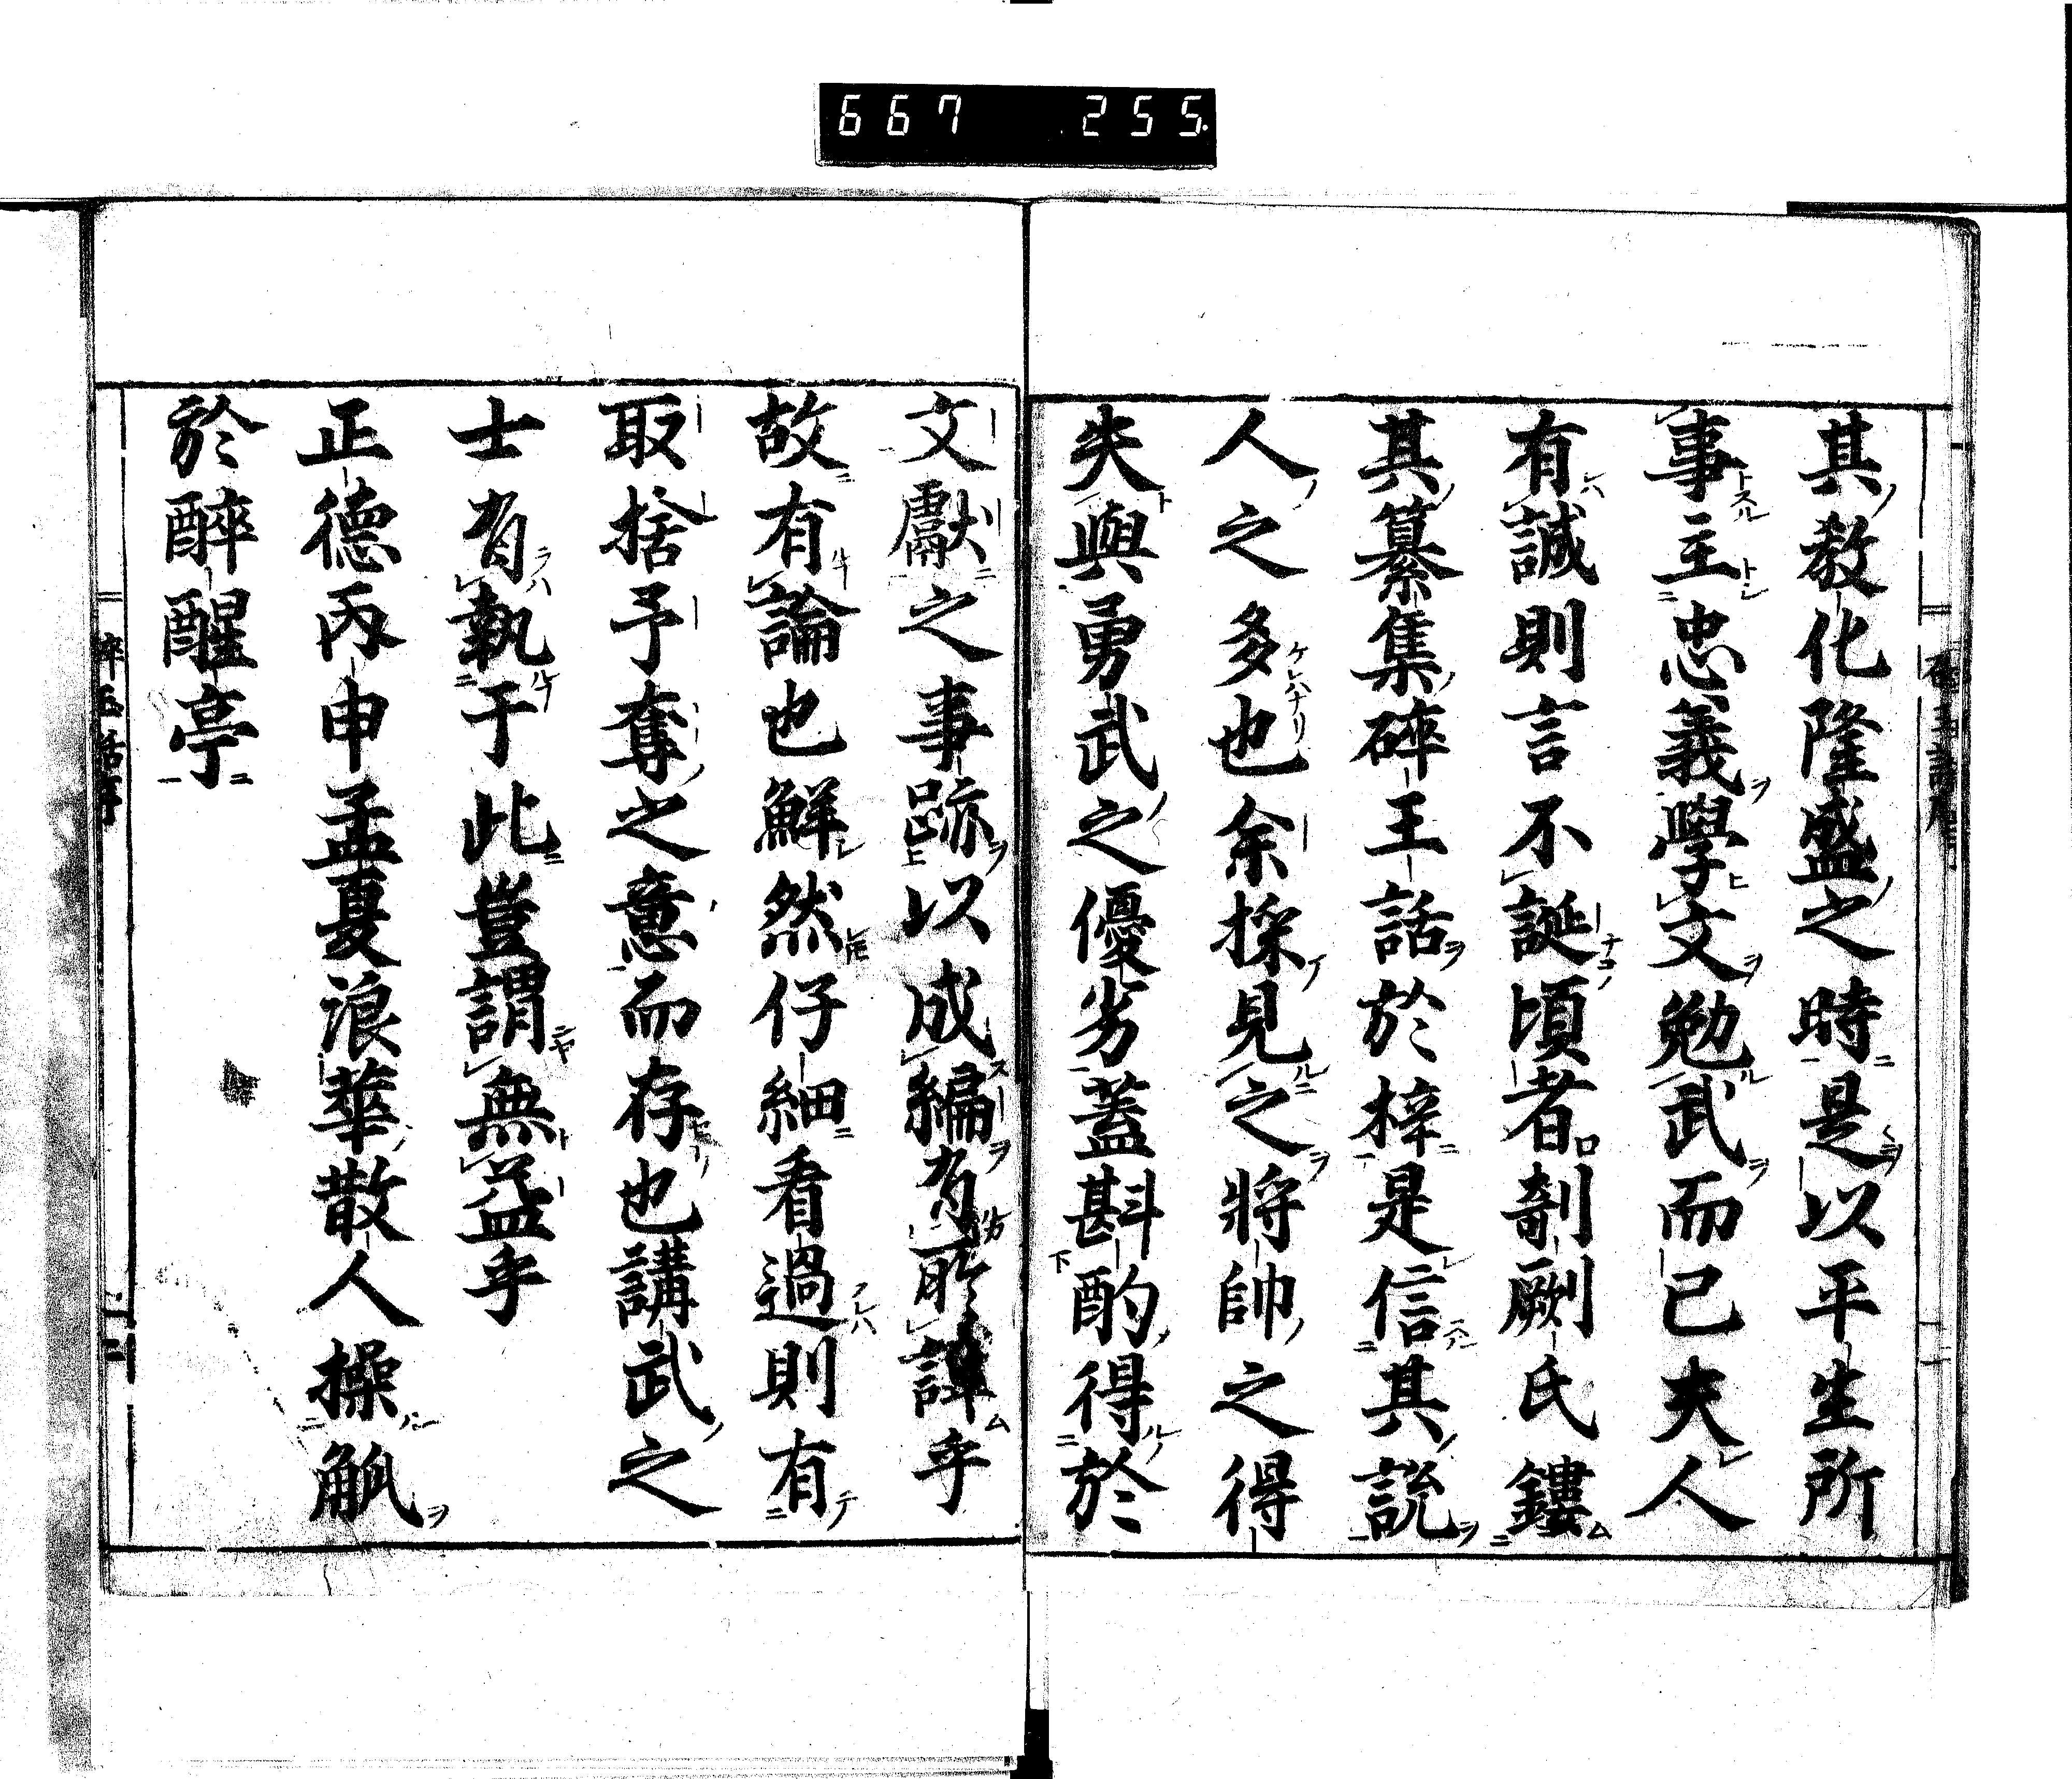 667 255.
其教化隆盛之時是以平生所
事主忠義學文勉武而已夫人
有誠則言不誕頃者剞劂氏鏤
其纂集碎玉話於梓是信其說
人之多也余採見之將帥之得
失與勇武之優劣蓋斟酌得於
文獻之事跡以成編有所諱乎
故有論也鮮然仔細看過則有
取捨予奪之意而存也講武之
士有執于此豈謂無益乎
正德丙申孟夏浪華散人操觚
於醉醒亭